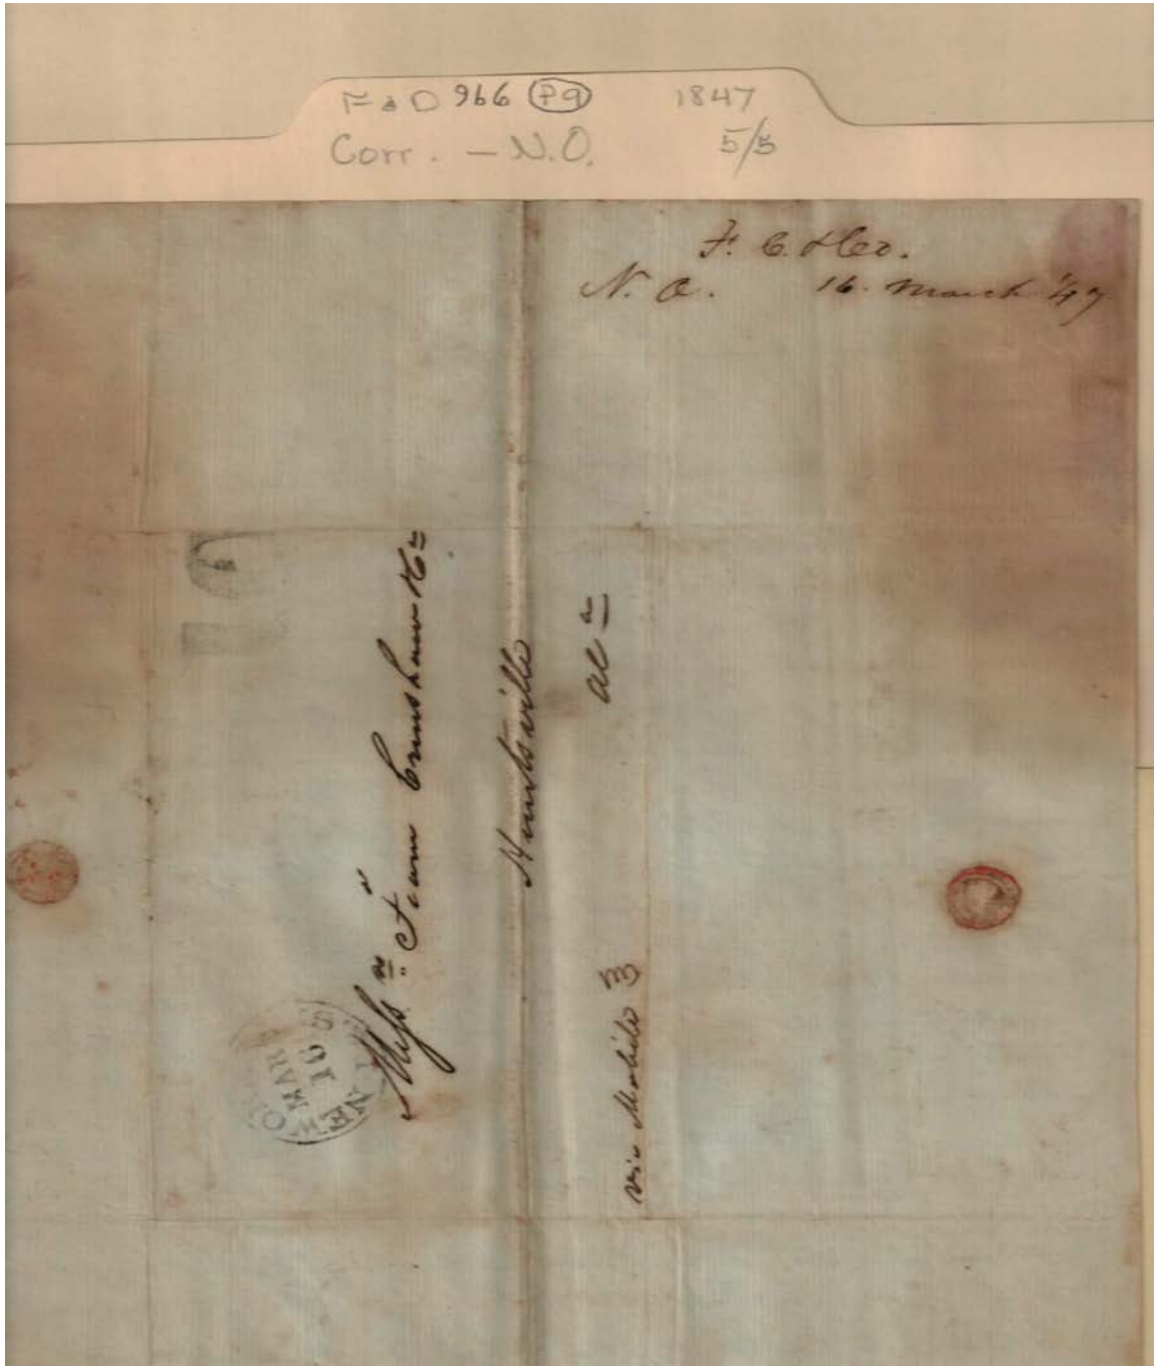 F&D 966 P9 1847
Corr. — N.O. 5/5
F. C. & Co.
N. O. 16. March '47
10
Messrs. Fearn Crenshaw & Co
Huntsville
Ala
via Mobile
NEW
MAR
16